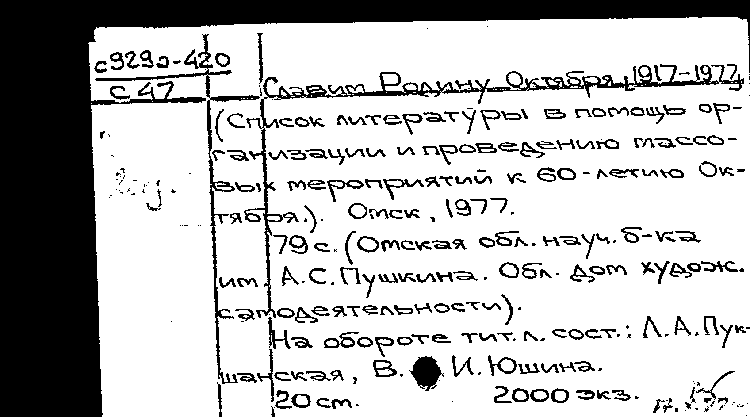 с929а-420
С 47
Славим Родину Октября, 1917-1977
(Список литературы в помощь ор-
ганизации и проведению массо-
вых мероприятий к 60-летию Ок-
тября.). Омск, 1977.
79 с. (Омская обл. науч. б-ка
им. А.С. Пушкина. Обл. дом худож.
самодеятельности).
На обороте тит. л. сост.: Л.А. Пук-
шанская, В. И. Юшина.
20 см. 2000 экз.